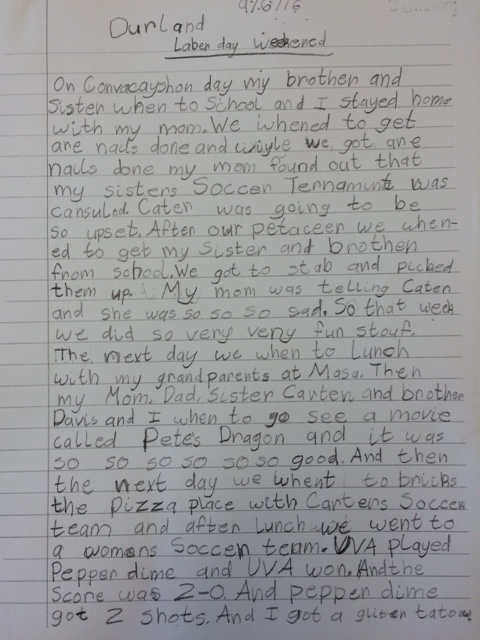 9/6/16
Durland
Laber day weekened
On Convacayshon day my brother and
Sister when to School and I stayed home
with my mom. We whened to get
are nails done and whyle we got are
nails done my mom found out that
my sisters Soccer Ternamint was
cansuled. Cater was going to be
so upset. After our petaceer we when-
ed to get my Sister and brother
from school. We got to stab and picked
them up. My mom was telling Cater
and she was so so so sad. So that week
we did so very very fun stouf.
The next day we when to Lunch
with my grandparents at Masa. Then
my Mom, Dad, Sister Carter, and brother
Davis and I when to go see a movie
called Pete's Dragon and it was
so so so so so so good. And then
the next day we whent to bricks
the pizza place with Carters Soccer
team and after Lunch we went to
a womens Soccer team. UVA played
Pepper dime and UVA won. And the
Score was 2-0. And pepper dime
got 2 shots. And I got a gliter tatow.